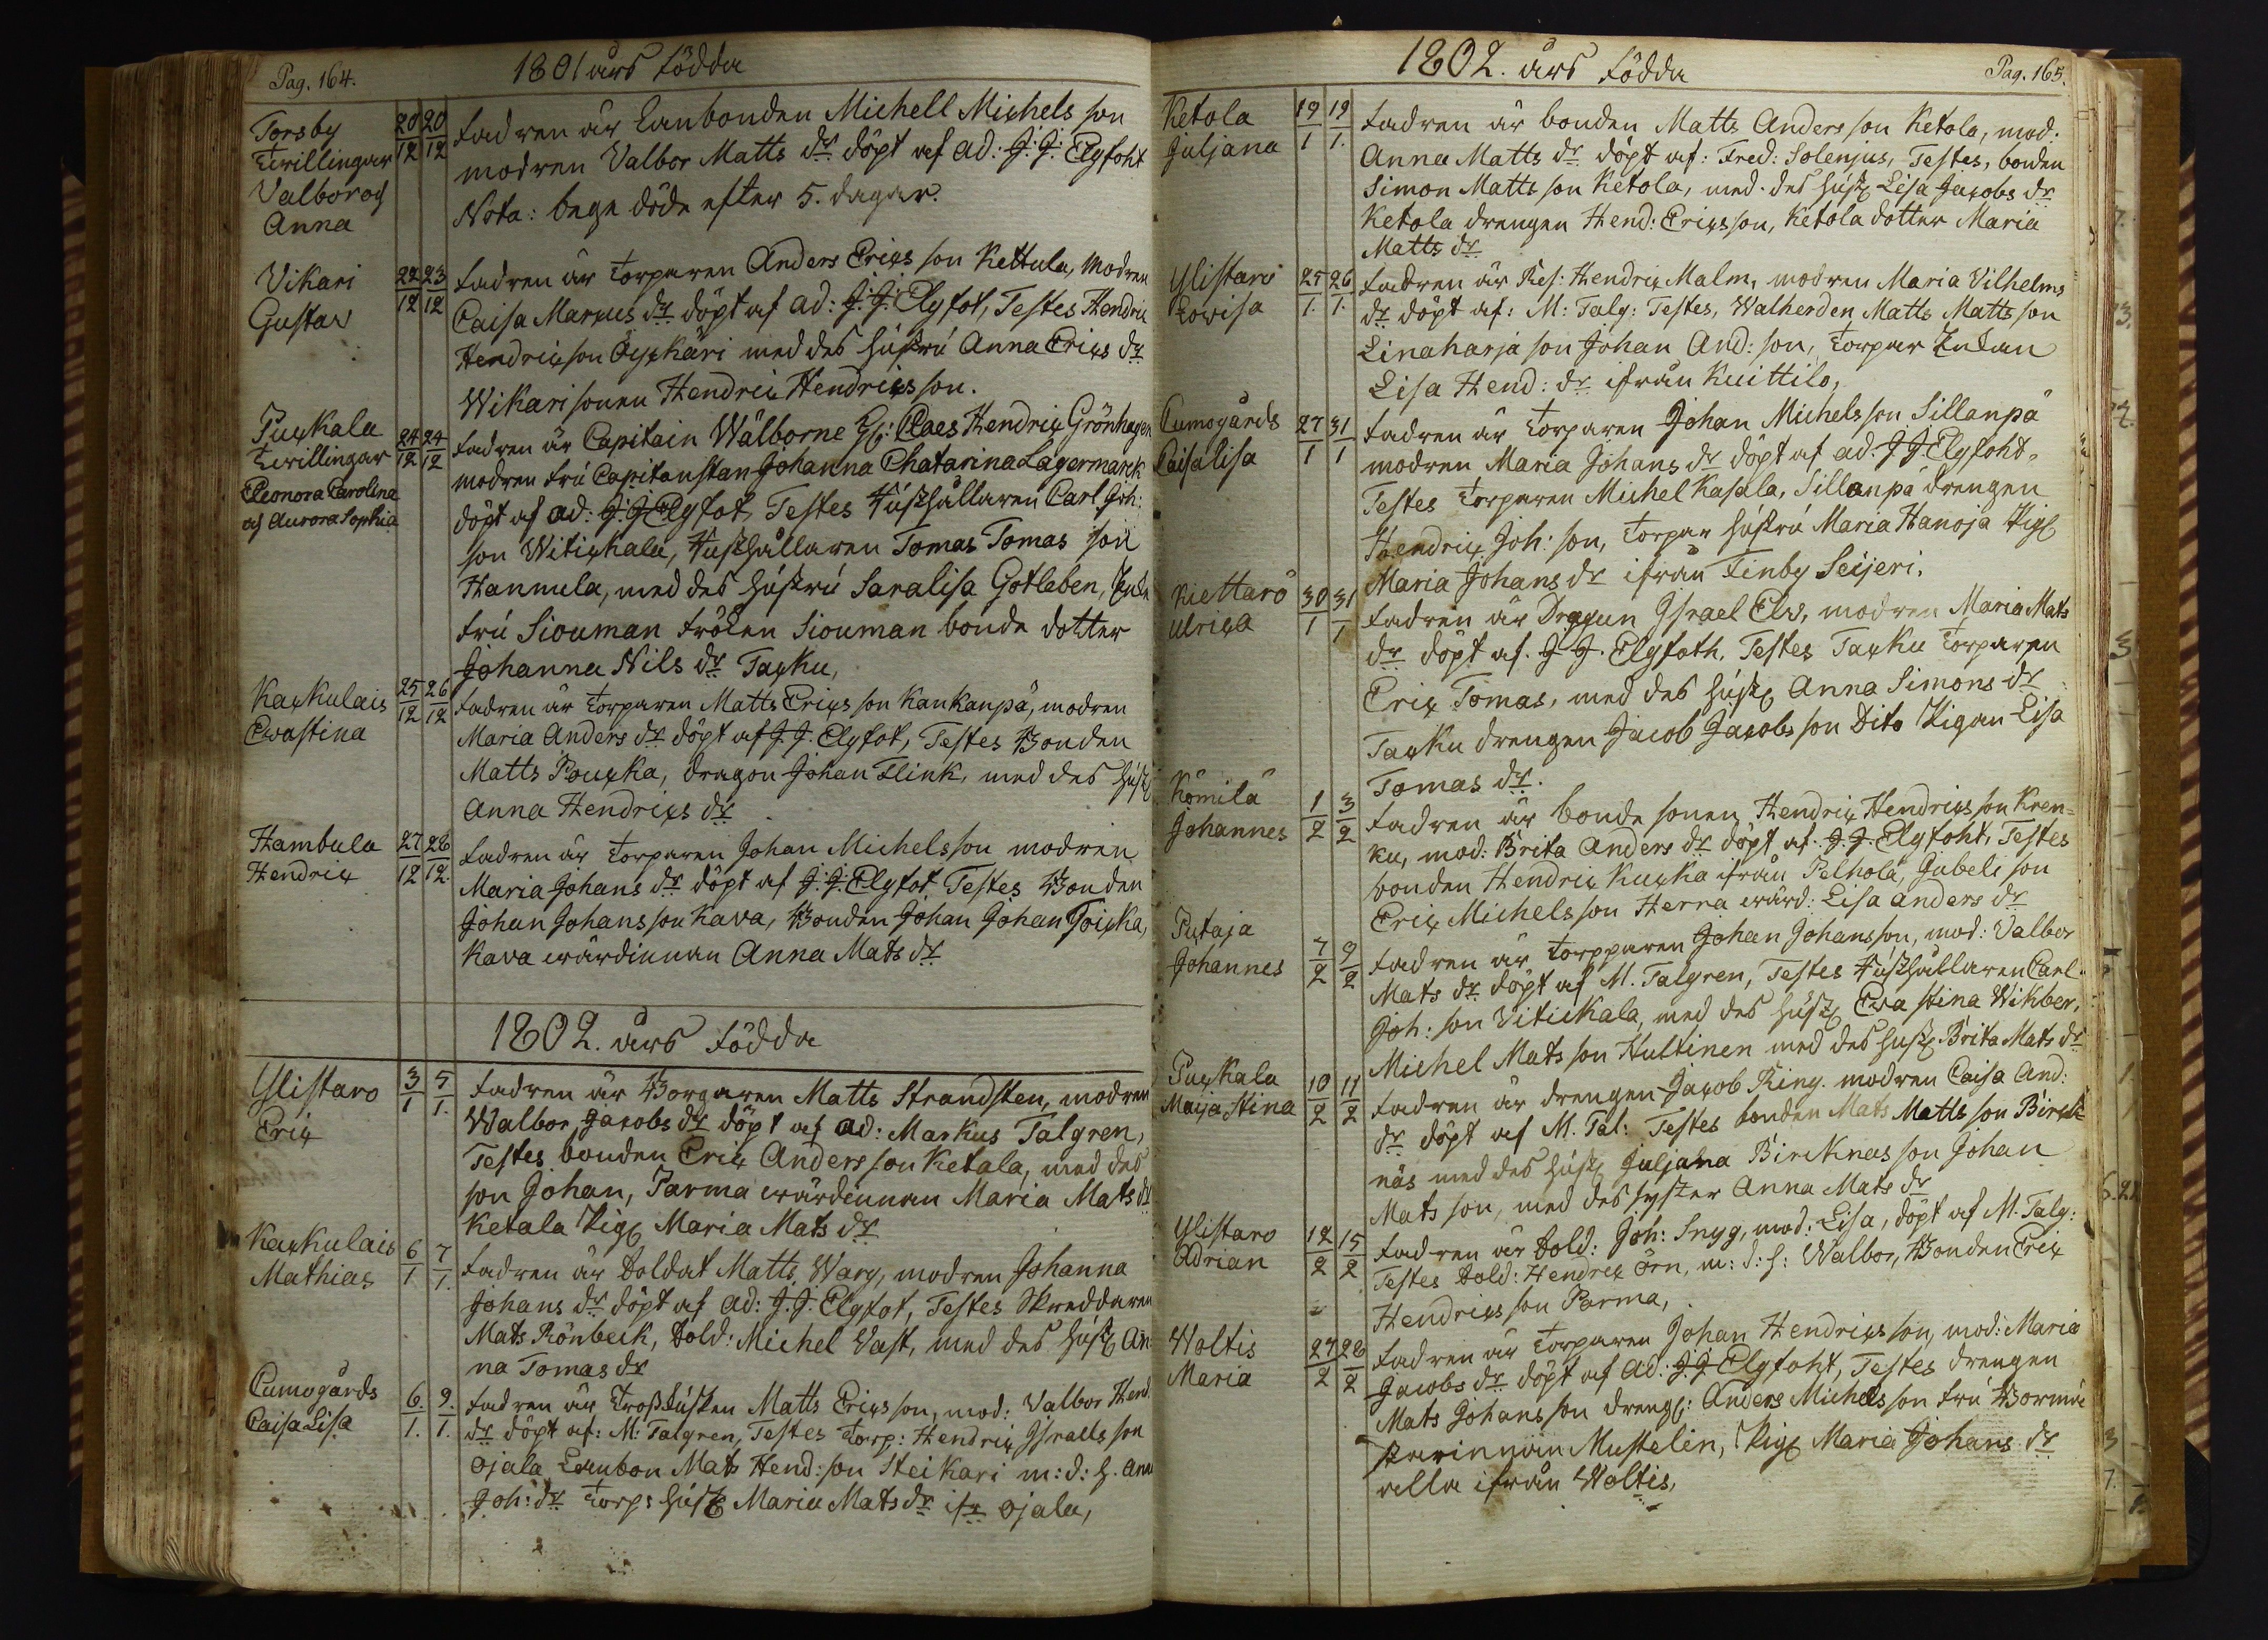 Pag. 164.
1801 års födda
Torsby
Tvillingar
Valbor og
Anna
20/12 20/12
Fadren är Lanbonden Michell Michels son
modren Valbor Matts dr döpt af ad: J: J: Elgfoht
Nota: bege döde efter 5. dagar.
Vikari
Gustav
22/12 23/12
Fadren är Torparen Anders Erics son Kettula, modren
Caisa Marcus dr döpt af ad: J: J: Elgfot, Testes Hendric
Hendricson Öyckäri med des hustru Anna Erics dr
Wikari sonen Hendric Hendricsson.
Puckala
Tvillingar
Eleonora Carolina
af Aurora Sophia
24/12 24/12
Fadren är Capitain Wälborne H: Claes Hendric Grönhagen
modren fru Capitanskan Johanna Chatarina Lagermarck
döpt af ad: J. J Elgfot, Testes Hushållaren Carl Joh:
son Witickala, Hushållaren Tomas Tomas son
Hannula, med des hustru Saralisa Gotleben,
fru Siouman fröken Siouman bonde dotter
Johanna Nils dr Tacku,
Kackulais
Evastina
25/12 26/12
Fadren är Torparen Matts Erics son Kankanpä, modren
Maria Anders dr döpt af J. J. Elgfot, Testes Bonden
Matts Roucka, dragon Johan Flink, med des hust
Anna Hendrics dr
Hambula
Hendric
27/12 28/12.
Fadren är Torparen Johan Michelsson modren
Maria Johans dr döpt af J. J. Elgfot Testes Bonden
Johan Johans son Kava, Bonden Johan Johan Toicka,
Kava wärdinnan Anna Mats dr
1802. års födda
Ylistaro
Eric
3/1 5/1.
Fadren är Borgaren Matts Strandsten, modren
Walbor Jacobs dr döpt af ad: Markus Talgren,
Testes bonden Eric Anders son Ketala, med des
son Johan, Parma wärdinnan Maria Mats dr
Ketala Pig Maria Mats dr
Kackulais
Mathias
6/1 7/1.
Fadren är Soldat Matts Warg, modren Johanna
Johans dr döpt af ad: J. J. Elgfot, Testes Skreddaren
Mats Rönbeck, Sold: Michel Vast, med des hust An
na Tomas dr
Cumogårds
Caisa Lisa
6./1. 9./1.
Fadren är Trosskusken Matts Ericsson, mod: Valbor Hend.
dr döpt af: M: Talgren, Testes Torp: Hendric Israels son
Ojala Lanbon Mats Hend: son Steikari m: d: h. Ann
Joh: dr Torp: hust Maria Mats dr ifr Ojala,
1802. års födda
Pag. 165.
Ketola
Juljana
19/1 19/1.
Fadren är bonden Matts Anders son Ketola, mod.
Anna Matts dr döpt af: Fred: Solenjus, Testes, bonden
Simon Matts son Ketola, med. des hust Lisa Jacobs dr
Ketola drengen Hend: Ericsson, Ketola dotter Maria
Matts dr
Ylistaro
Lowisa
25/1. 26/1.
Fadren är Ref: Hendric Malm, modren Maria Vilhelms
dr döpt af: M: Talg: Testes, Walherden Matts Matts son
Linaharja son Johan And: son, Torpar Enkan
Lisa Hend: dr ifrån Kuittilo,
Cumogårds
Caisa lisa
27/1 31/1
Fadren är Torparen Johan Michels son Sillanpä
modren Maria Johans dr döpt af ad. J J. Elgfoht.
Testes Torparen Michel Kasala, Sillanpä drengen
Hendric Joh: son, Torpar hustru Maria Hanoja Pig
Maria Johans dr ifrån Finby Seijeri.
Kiettaro
Ulrica
30/1 31/1
Fadren är Dragun Israel Elv, modren Maria Mats
dr döpt af. J J. Elgfoth. Testes Tacku Torparen
Eric Tomas, med des hust Anna Simons dr
Tacku drengen Jacob Jacobs son Dito Pigan Lisa
Tomas dr.
Kömilä
Johannes
1/2 3/2
Fadren är bonde sonen Hendric Hendrics son Kren=
ku, mod: Brita Anders dr döpt af. J. J. Elgfoht, Testes
bonden Hendric Kucka ifrån Pelhola, Gubeli son
Eric Michelsson Herra wärd: Lisa Anders dr
Putaja
Johannes
7/2 9/2
Fadren är Torpparen Johan Johansson, mod: Valbor
Mats dr döpt af M. Talgren, Testes Hushållaren Carl
Joh: son Vitickala, med des hust Eva Stina Wikber,
Michel Mats son Huttinen med des hust Brita Mats dr
Puckala
Maija Stina
10/2 11/2
Fadren är drengen Jacob Ring. modren Caisa And:
dr döpt af M. Tal: Testes bonden Mats Matts son Birck
näs med des hust Juljana Bircknas son Johan
Mats son, med des syster Anna Mats dr
Ylistaro
Adrian
12/2 15/2
Fadren är Sold: Joh: Snyg, mod: Lisa, döpt af M. Talg:
Testes Sold: Hendric Örn, m: d: h: Walbor, Bonden Eric
Hendricsson Parma,
Woltis
Maria
27/2 28/2
Fadren är Torparen Johan Hendrics son, mod: Maria
Jacobs dr döpt af ad. J. J Elgfoht, Testes drengen
Mats Johansson dreng: Anders Michelsson fru Borme
starinnan Mustelin, Pig Maria Johans dr
alla ifrån Woltis,